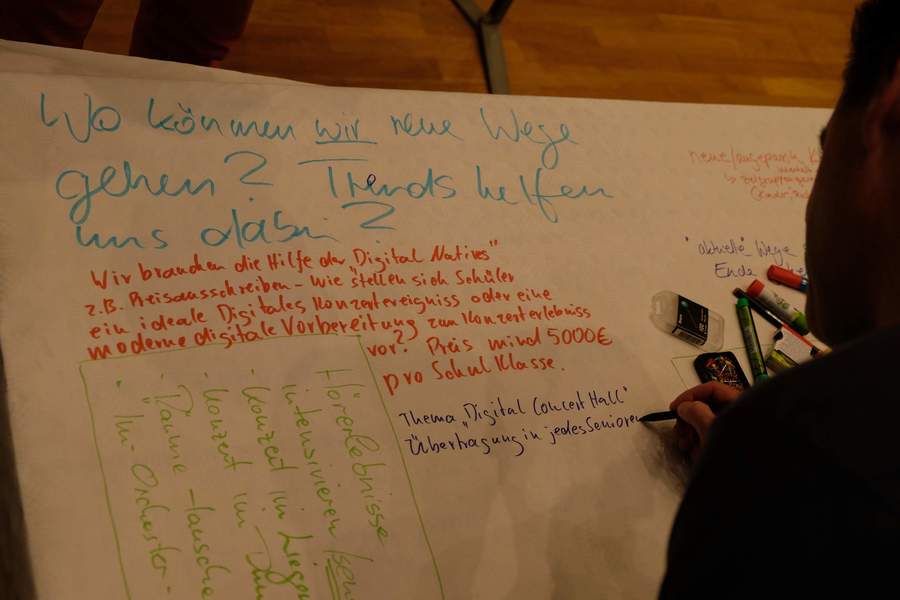 Wo können wir neue Wege
gehen? Trends helfen
uns dabei?
Wir brauchen die Hilfe der "Digital Natives"
z.B. Preisausschreiben - wie stellen sich Schüler
ein ideale Digitales Konzertereigniss oder eine
moderne digitale Vorbereitung zum Konzerterlebniss
vor? Preis mind 5000€
pro Schul Klasse.
Thema "Digital Concert Hall"
Übertragung in jedes Senioren
Hörerlebnisse
intensivieren
· Konzert im Liegen
· Konzert im
· Räume
· "Im-Orchester-
"aktuelle" Wege
Ende